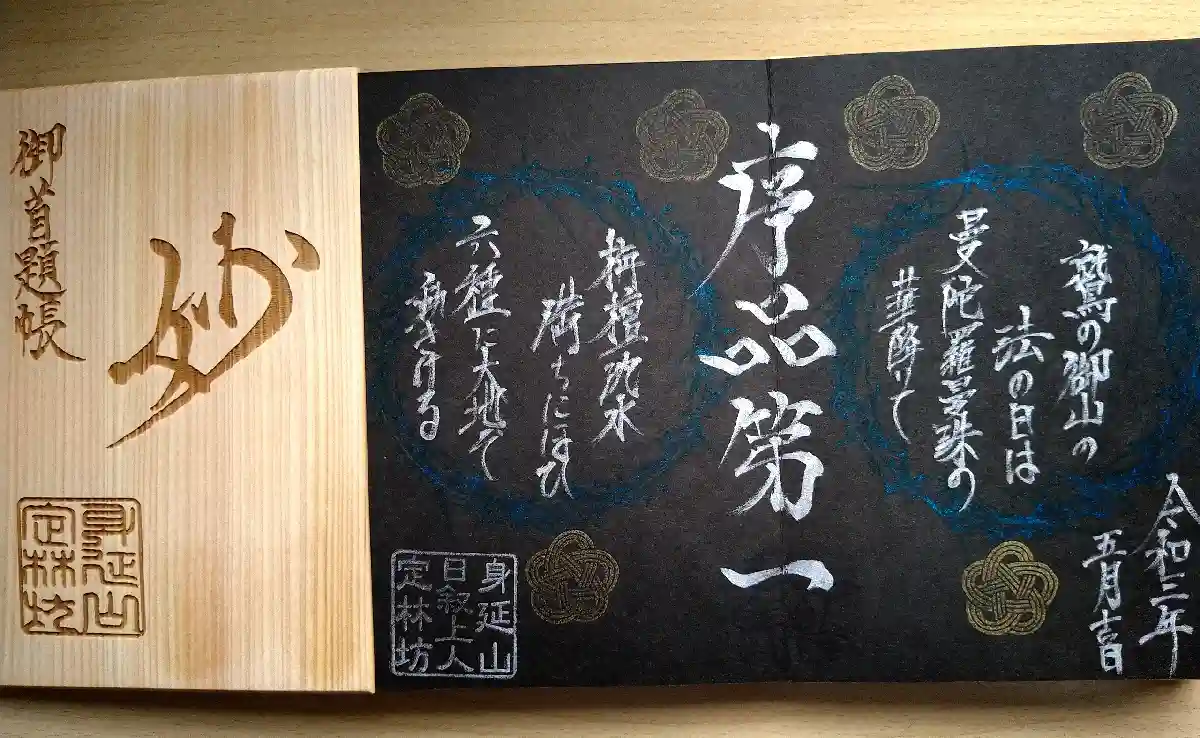 御首題帳
妙
身延山
定林坊
令和三年
五月吉日
鷲の御山の
法の日は
曼陀羅曼珠の
華降りて
序品第一
栴檀
満ちにほひ
六種に大地ぞ
動きける
身延山
日叙上人
定林坊